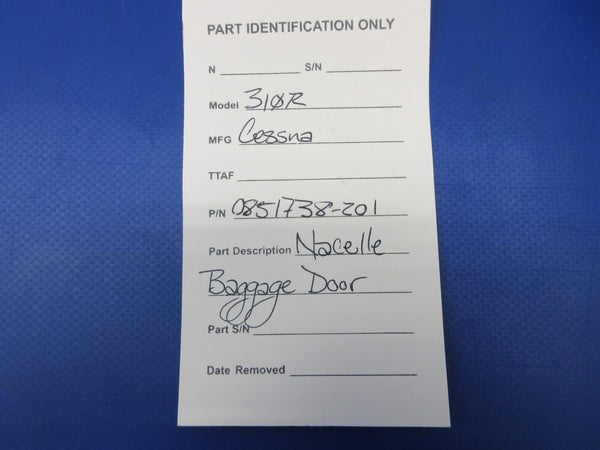 PART IDENTIFICATION ONLY
N ____________ S/N ____________
Model 310R
MFG Cessna
TTAF ____________
P/N 0851738-201
Part Description Nacelle
Baggage Door
Part S/N ____________
Date Removed ____________